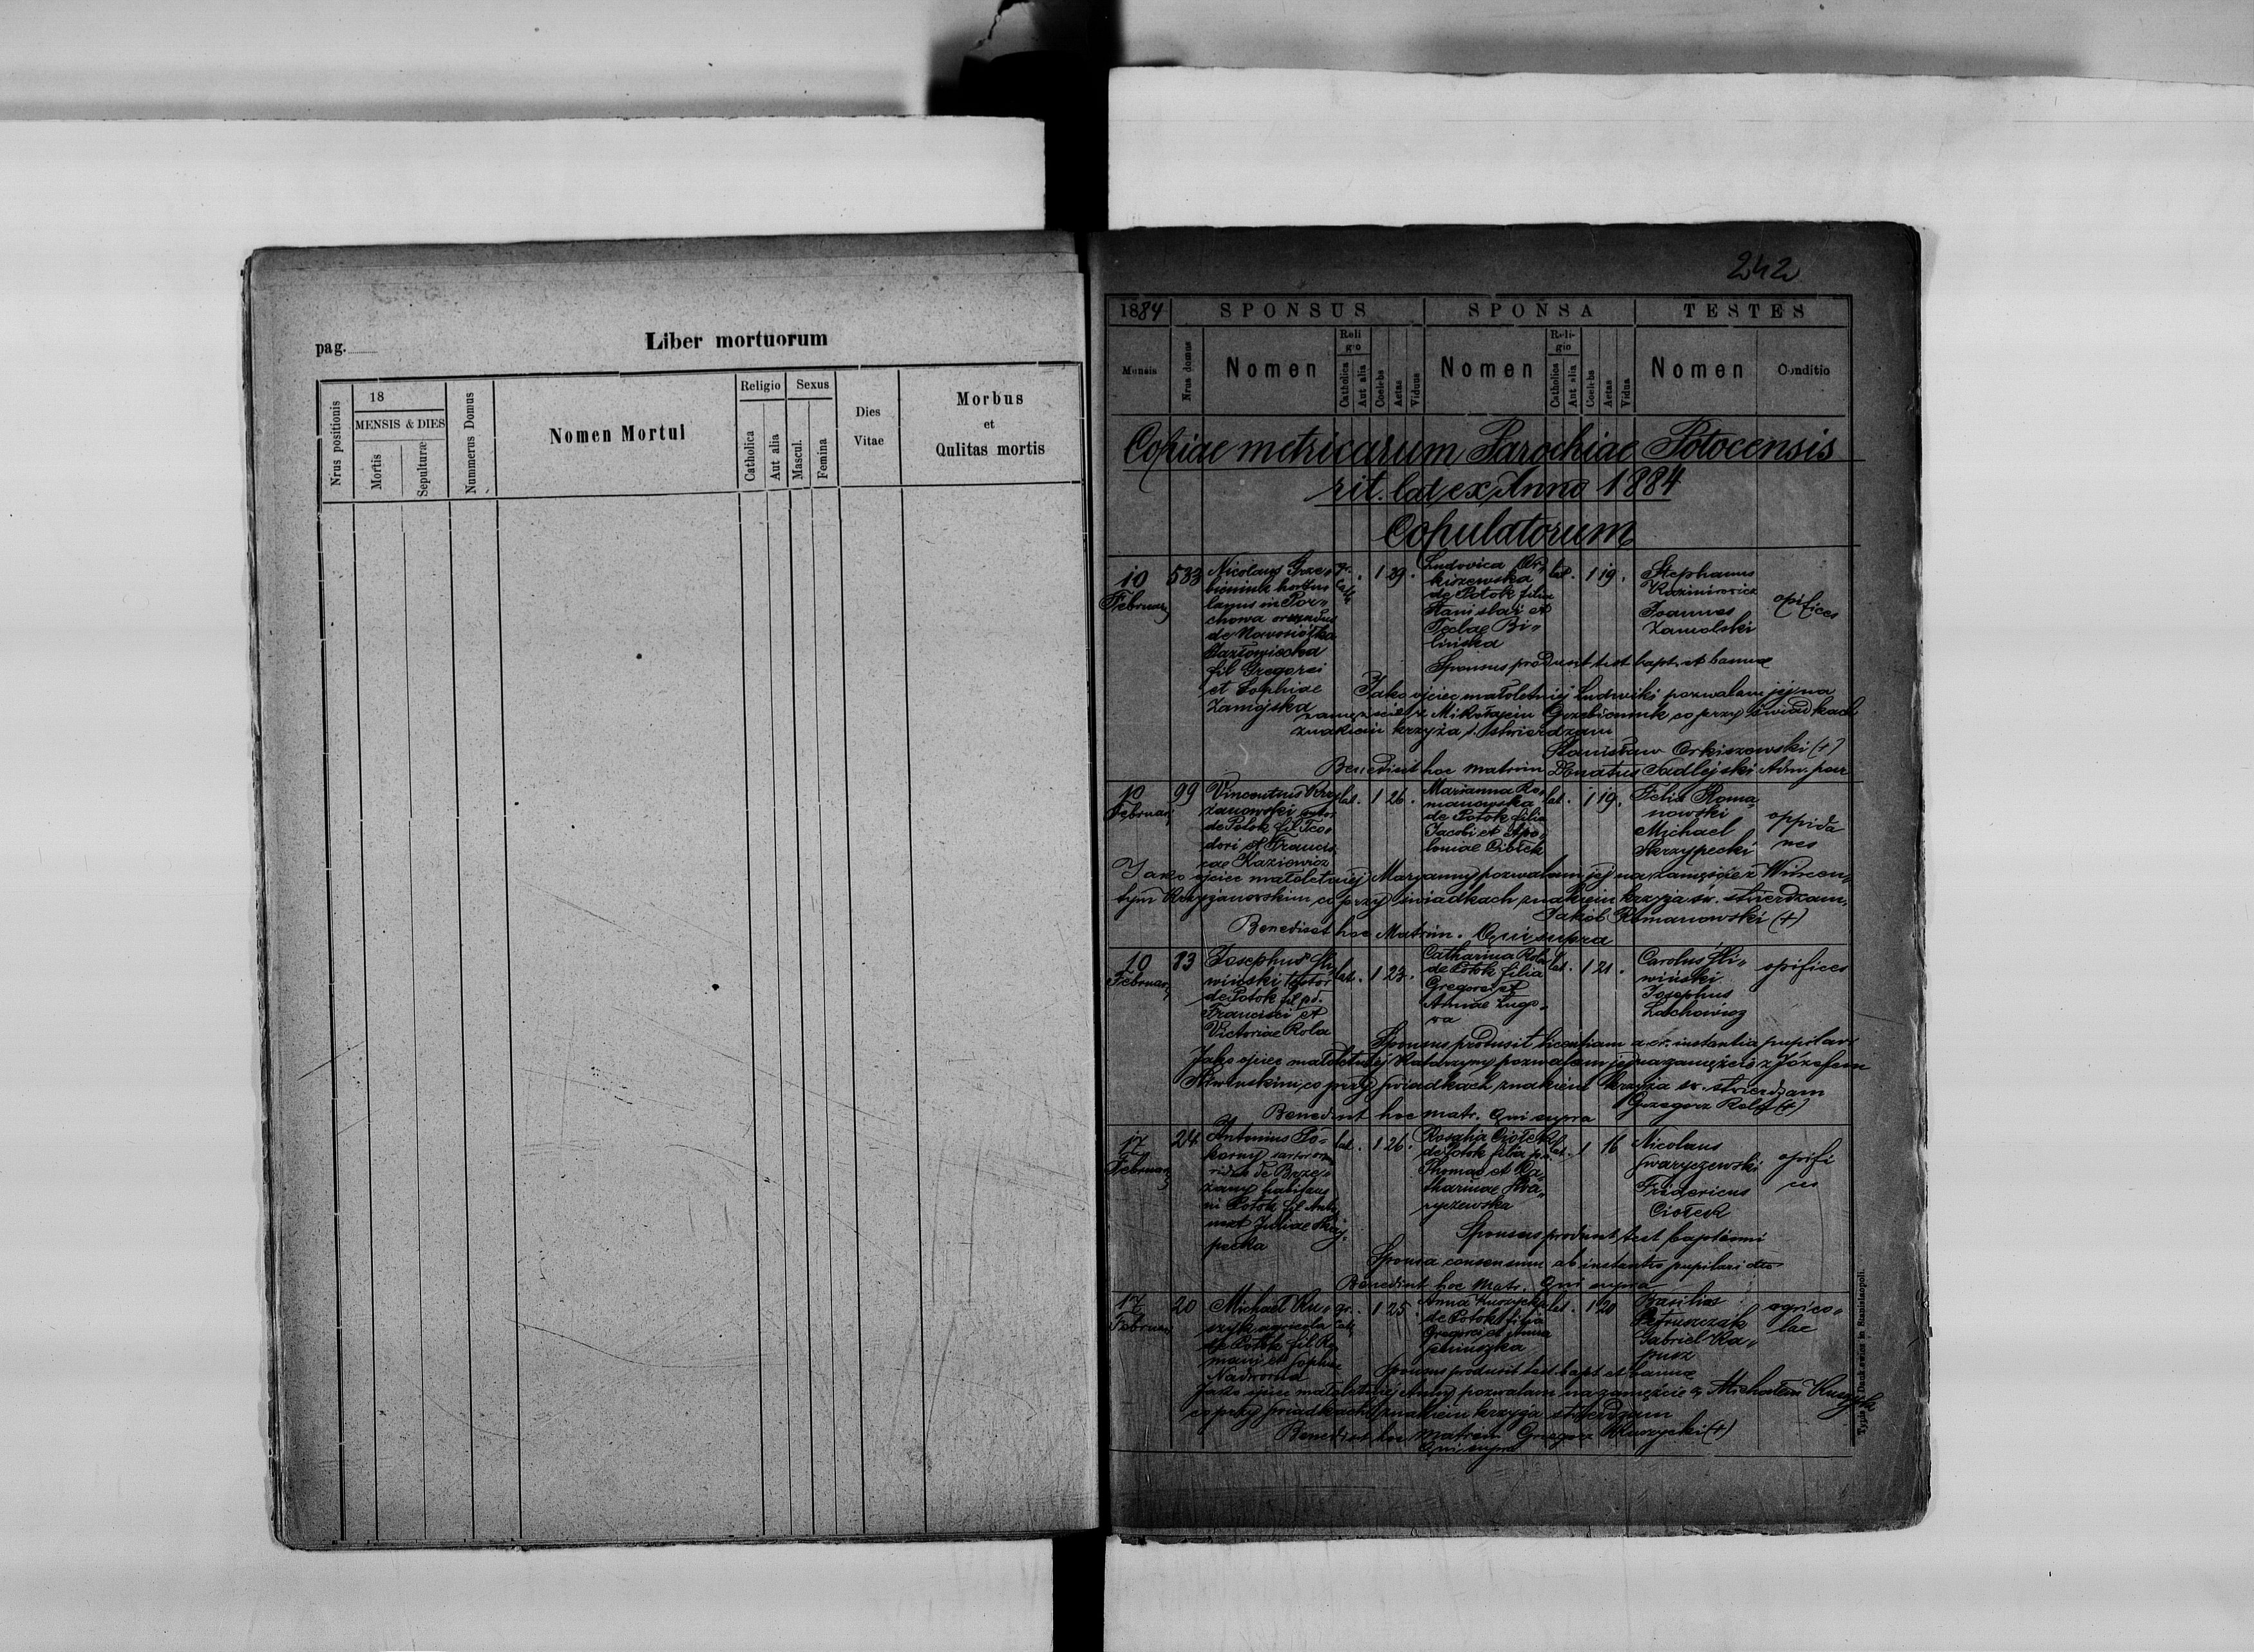 pag.
Liber mortuorum
Nrus positionis
18
MENSIS & DIES
Mortis
Sepulturæ
Nummerus Domus
Nomen Mortui
Religio
Catholica
Aut alia
Sexus
Mascul.
Femina
Dies
Vitae
Morbus
et
Qulitas mortis
242
1884
SPONSUS
SPONSA
TESTES
Mensis
Nrus domus
Nomen
Religio
Catholica
Aut alia
Coelebs
Aetas
Viduus
Nomen
Religio
Catholica
Aut alia
Coelebs
Aetas
Vidua
Nomen
Conditio
Copiae metricarum Parochiae Potocensis
rit. lat ex Anno 1884
Copulatorum
10
Februar
583
Nicolaus Grze-
bieniuk hortu
lanus in Por-
chowa oriundus
de Nowosiołka
Jazłowiecka
fil Gregorii
et Sophiae
Zamojska
gr.
cath
1 29
Ludovica Or-
kiszewska
de Potok filia
Stanislai et
Teclae Bi-
lińska
lat. 1 19.
Stephanus
Kazimirowicz
Joannes
Zamolski
opi
fices
Sponsus produxit test bapt. et banna
Jako ojciec małoletniej Ludwiki pozwalam jej na
zamęzcie z Mikołajem Grzebieniuk co przy świadkach
znakiem krzyża ś. stwierdzam
Stanisław Orkiszewski (+)
Benedixit hoc matrim Donatus Sadlejski Adm. par
10
Februar
99
Vincentius Krzy
zanowski sutor
de Potok fil Teo-
dori et Francis
cae Kaziewicz
lat. 1 26.
Marianna Ro-
manowska
de Potok filia
Jacobi et Apo-
loniae Ciołek
lat. 1 19.
Felix Roma
nowski
Michael
Skrzypecki
oppida
nes
Jako ojciec małoletniej Maryanny pozwalam jej na zamęzcie z Wincen-
tym Krzyżanowskim, co przy świadkach znakiem krzyża św. stwierdzam,
Jakób Romanowski (+)
Benedixit hoc Matrim. Qui supra
10
Februar
83
Josephus
textor
de Potok fil pd.
Francisci et
Victoriae Rola
lat. 1 23.
Catharina Rola
de Potok filia
Gregorii et
Annae Ługo-
wa
lat. 1 21.
Carolus
Josephus
Lachowicz
opifices
Sponsus produxit licentiam a cr. instantia pupilari
Jako ojciec małoletniej Katarzyny pozwalam jej na zamęzcie z Józefem
co przy świadkach znakiem krzyża św. stwierdzam
Grzegorz Rola (+)
Benedixit hoc matr. Qui supra
17
Februar
24
Antonius Po-
korny sartor
de Brze-
żany habitans
in Potok fil Anto
ni et Juliae Skrzy-
pecka
lat. 1 26.
Rosalia Ciołek
de Potok filia
Thomae et Ca-
tharinae Swa-
ryczewska
lat. 1 16
Nicolaus
Swaryczewski
Fridericus
Ciołek
opifi
ces
Sponsus produxit test baptismi
Sponsa consensum ab instantia pupilari dto
Benedixit hoc Matr. Qui supra
17
Februar
20
Michael Ku-
szyk agricola
de Potok fil Ro
mani et Sophiae
Nadworna
gr.
cath
1 25.
Anna
de Potok filia
Gregorii et Annae
lat. 1 20
Basilius
Petruszczak
Gabriel Ka-
pusz
agrico-
lae
Sponsus produxit test. bapt et banna
Jako ojciec małoletniej Anny pozwalam na zamęzcie z Michałem Kuszyk
co przy świadkach znakiem krzyża stwierdzam
Benedixit hoc matrim Grzegorz (+)
Qui supra